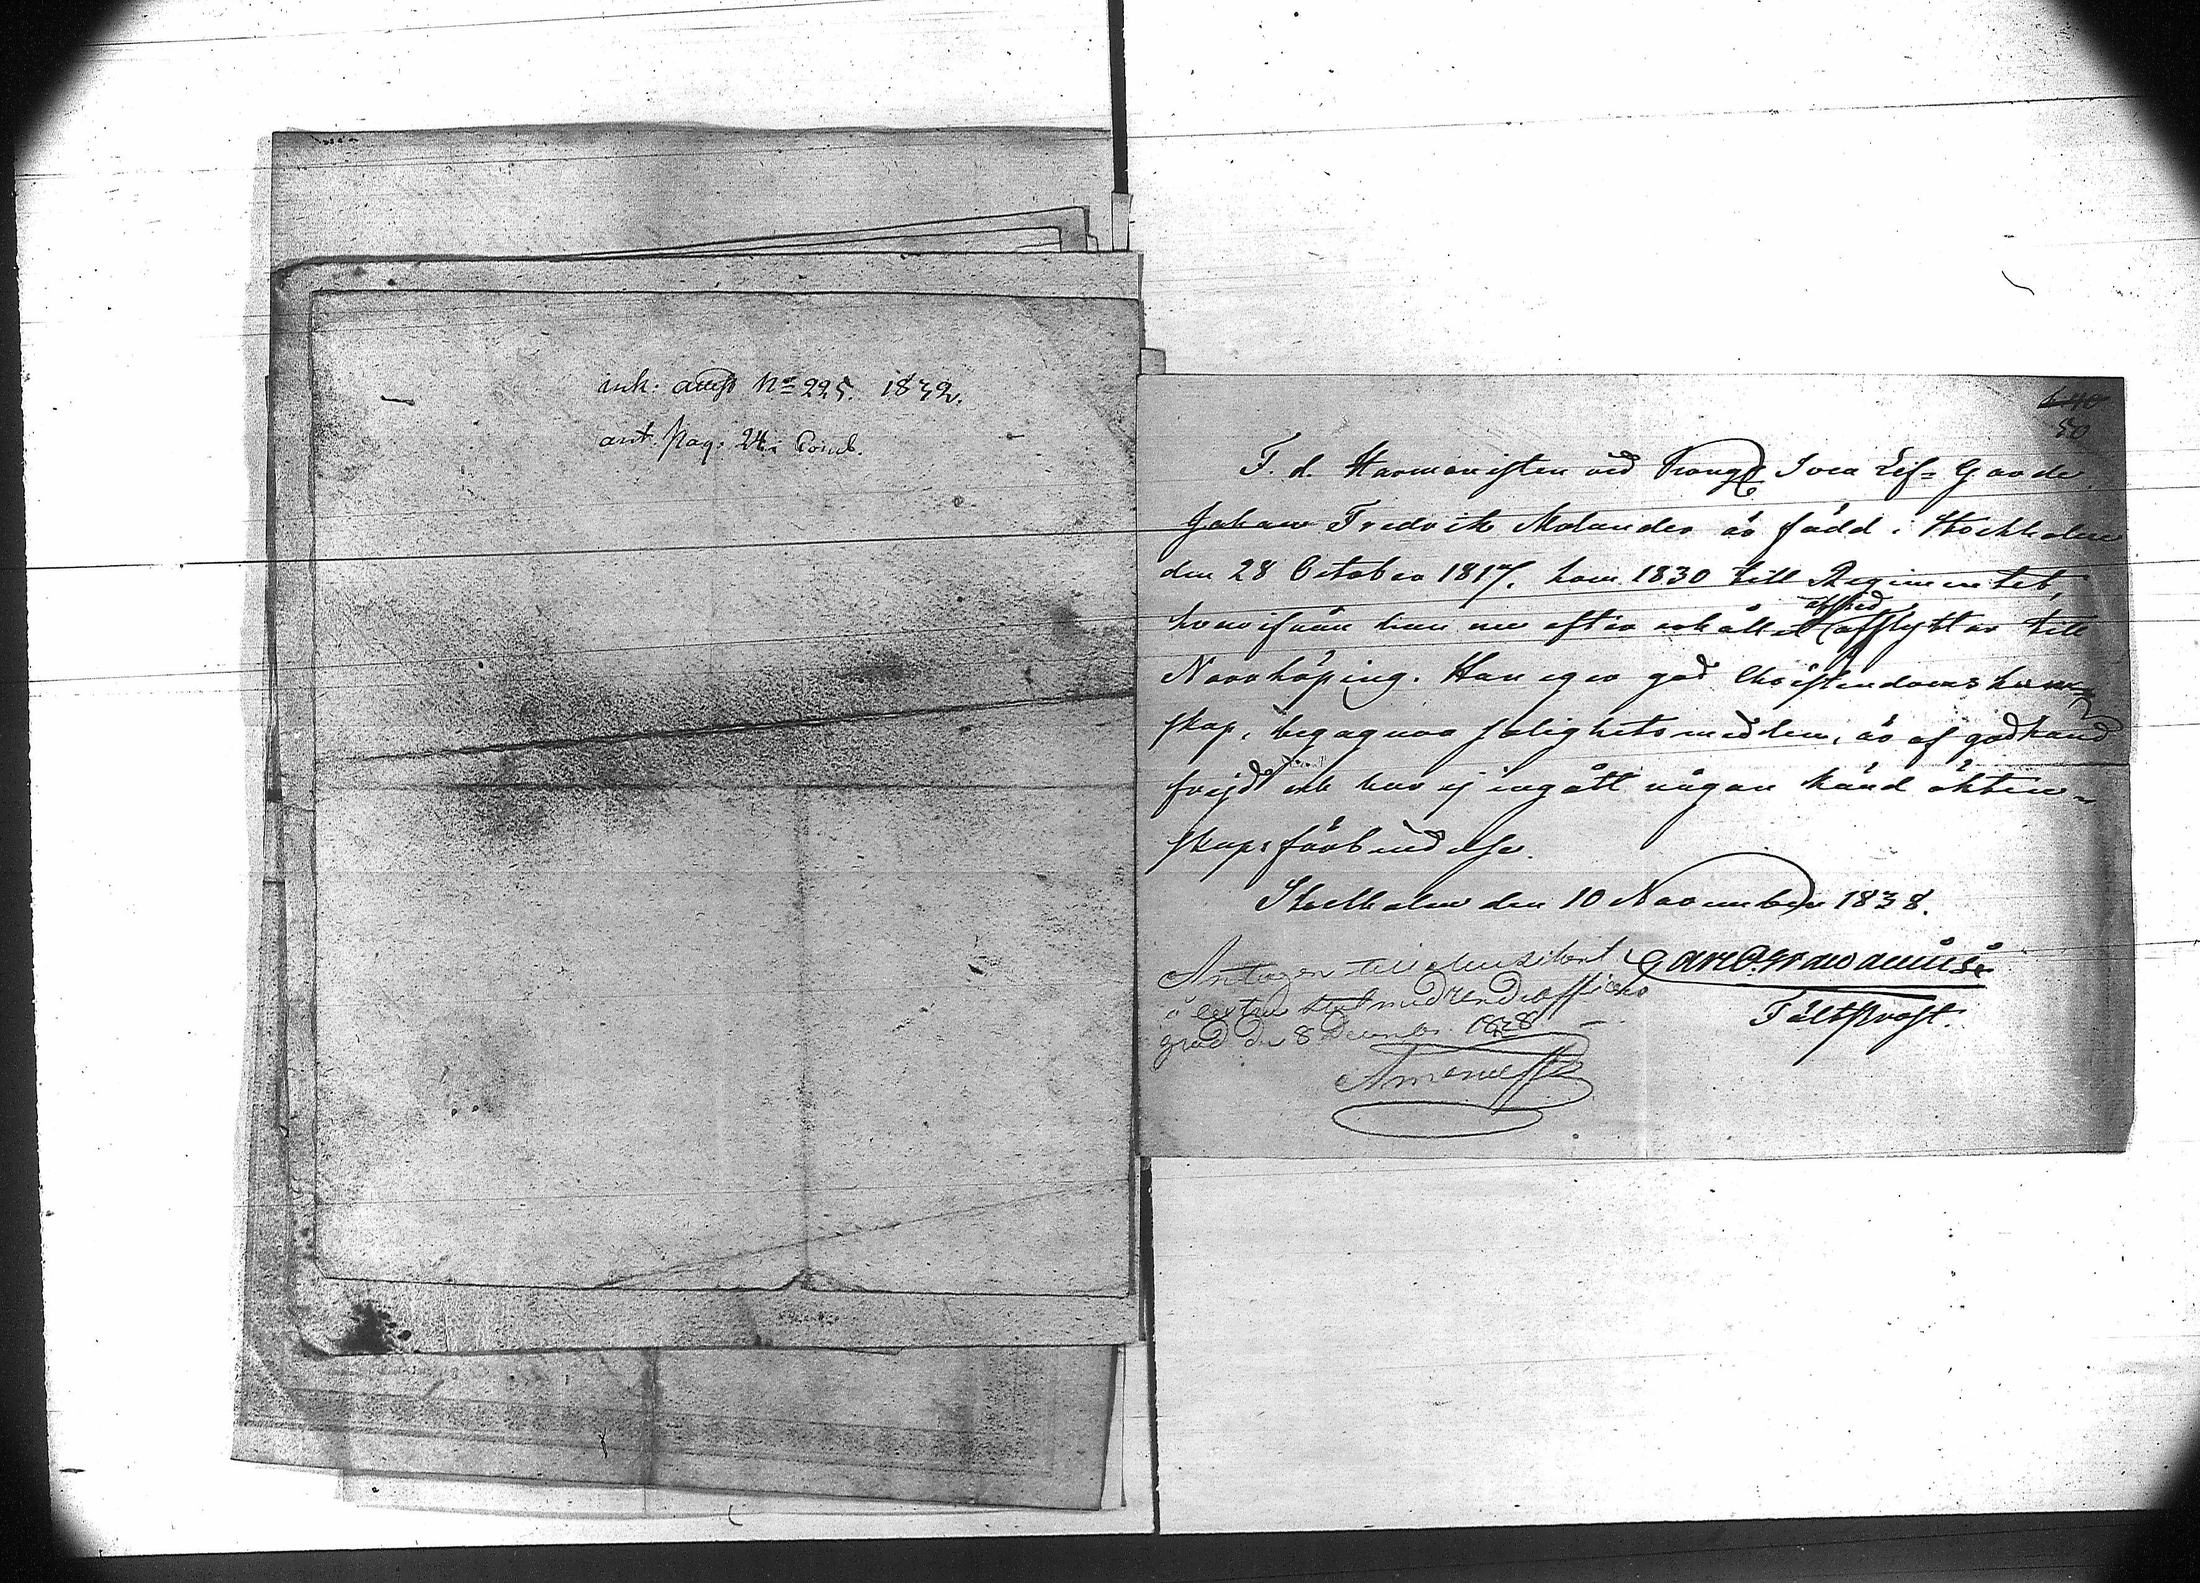 ink. attest No 225. 1832.
ant. pag. 24.
50
F. d. Harmonisten vid Kongl Svea Lif= Garde
Johan Fredrik Molander är född i Stockholm
den 28 October 1817. kom 1830 till Regimentet,
hvarifrån han nu efter erhållet afsked afflyttar till
Norrköping. Han eger god Christendomskun=
skap, begagnar salighetsmedlen, är af godkänd
frejd och har ej ingått någon känd äkten=
skapsförbindelse.
Stockholm den 10 November 1838.
Carl
Fältprost.
Antagen till Musikant
å extra stat med Underofficers
grad den 8 December 1838